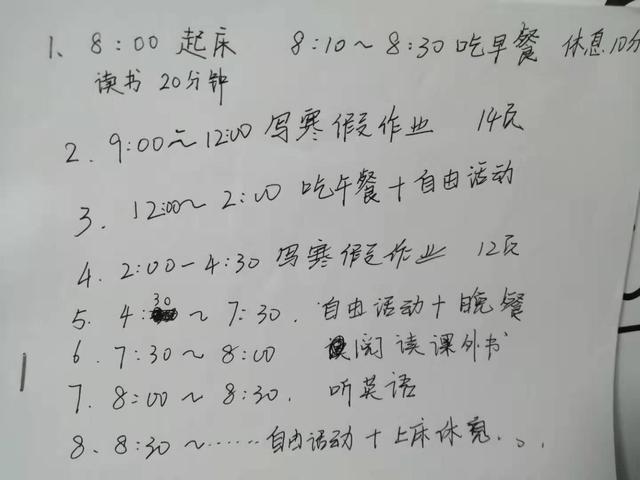 1、8:00 起床 8:10~8:30 吃早餐 休息10分
读书 20分钟
2. 9:00~12:00 写寒假作业 14页
3. 12:00~2:00 吃午餐+自由活动
4. 2:00-4:30 写寒假作业 12页
5. 4:30~7:30. 自由活动+晚餐
6. 7:30~8:00 阅读课外书
7. 8:00~8:30. 听英语
8、8:30~……自由活动+上床休息...